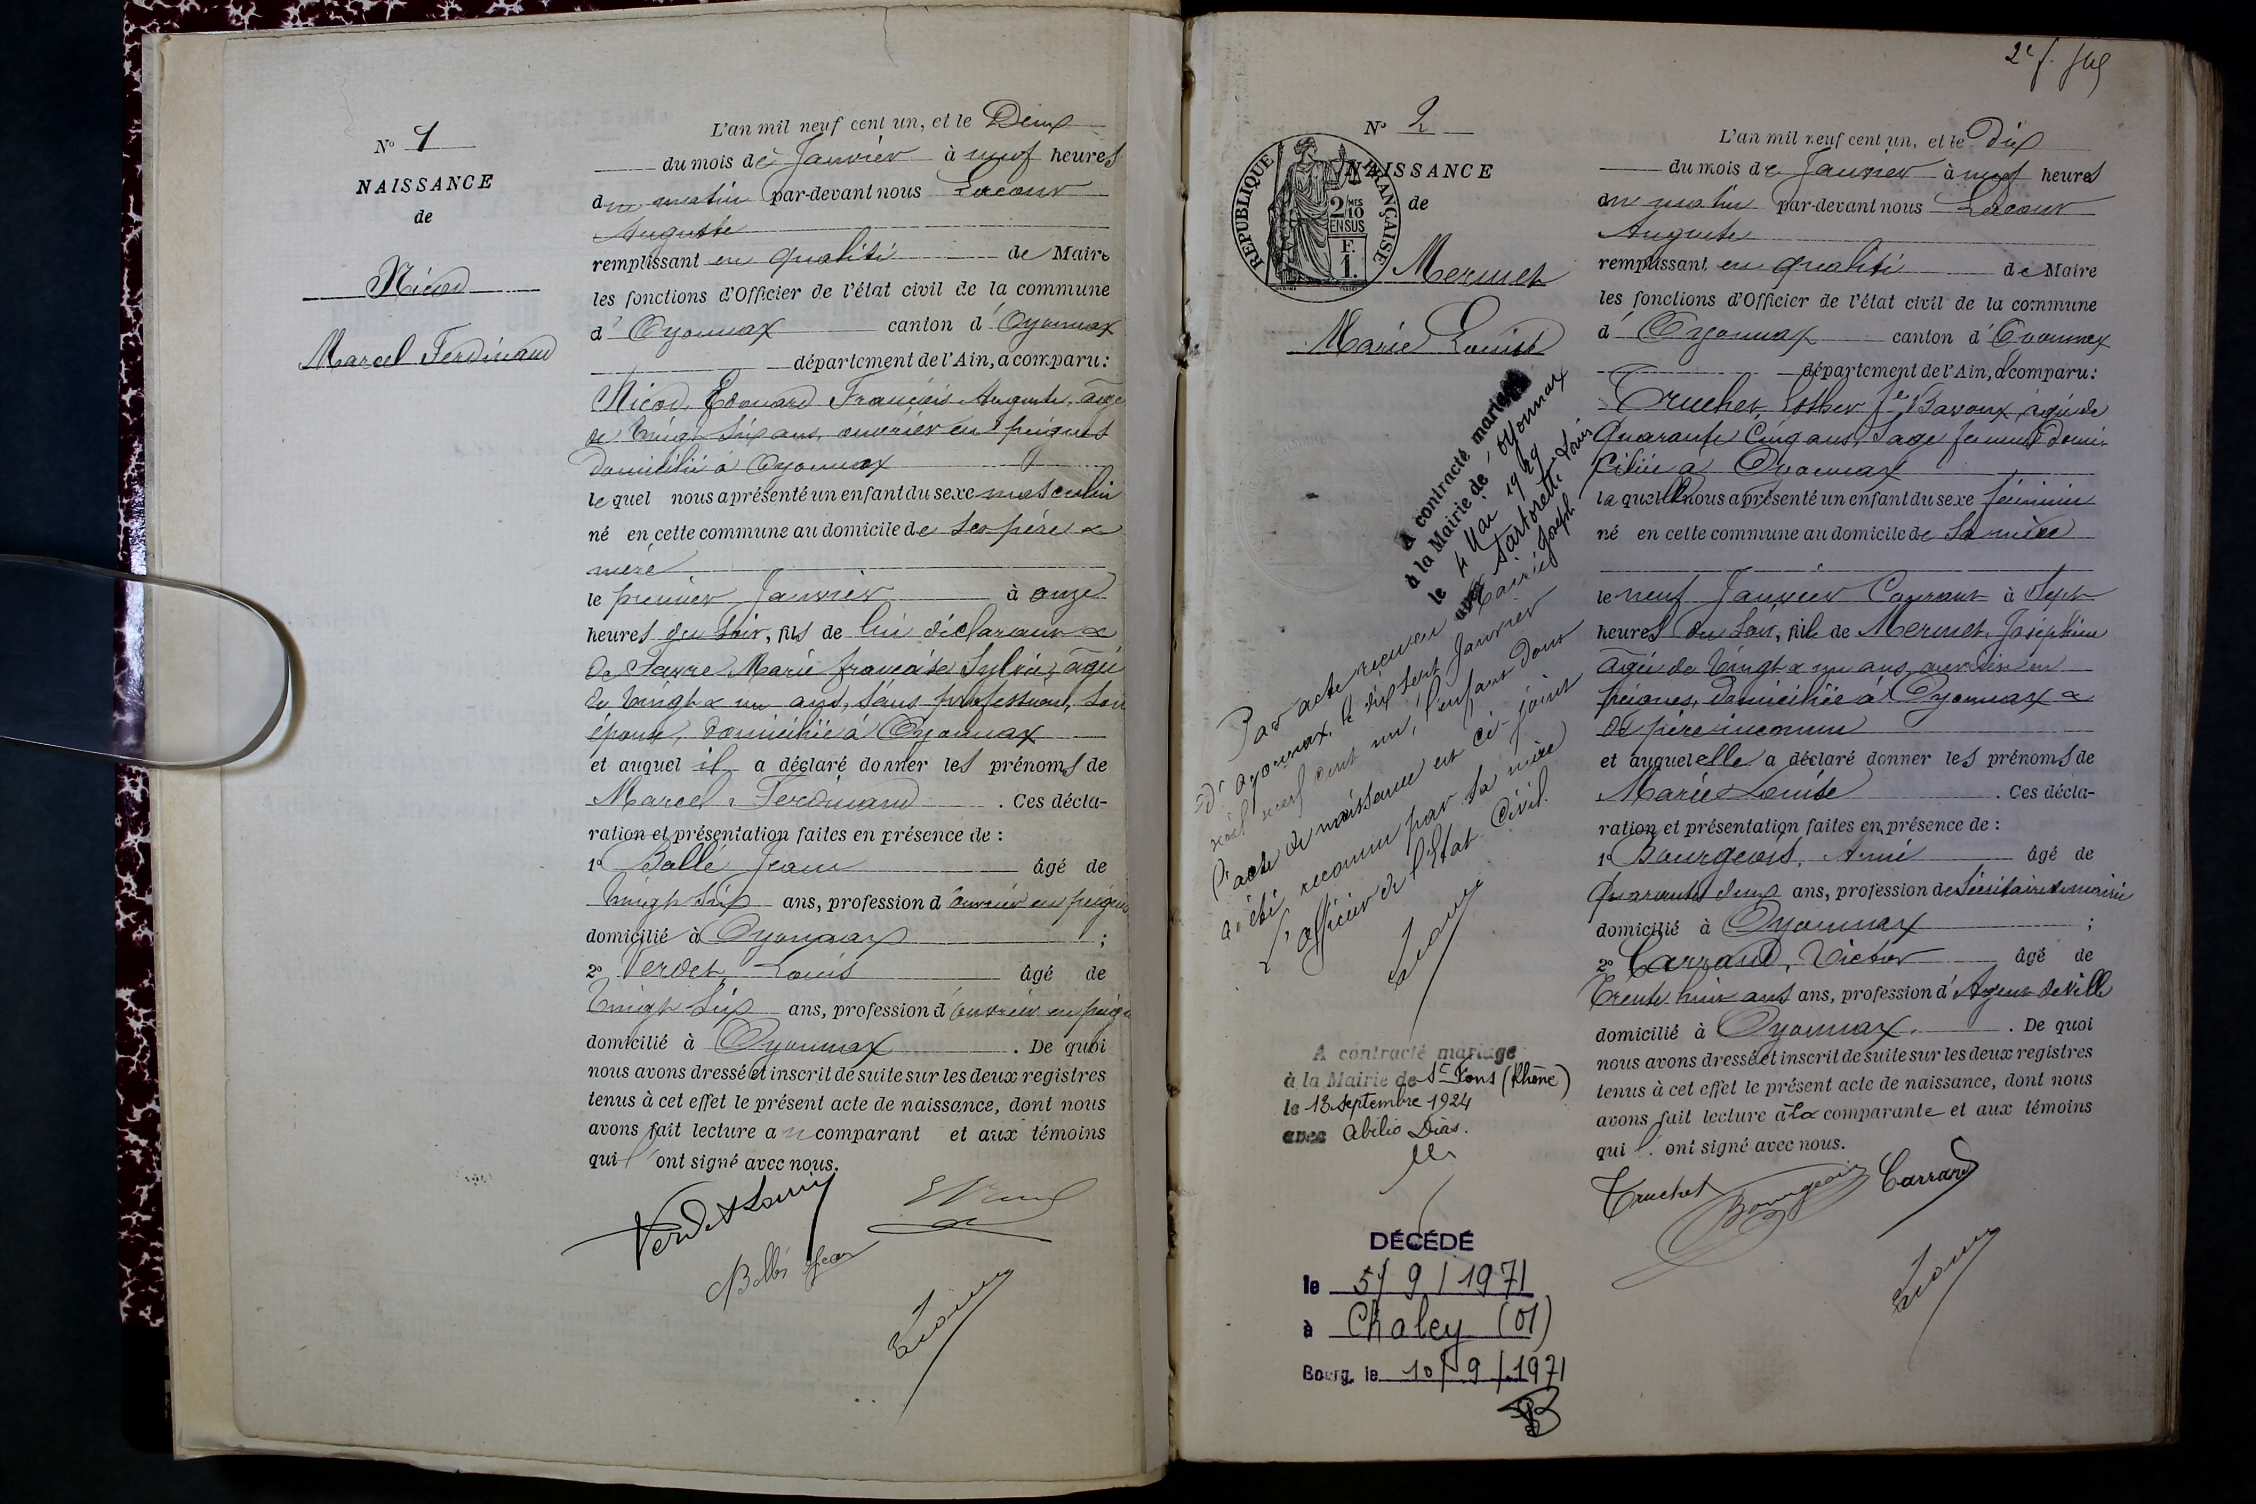 N° 1
NAISSANCE
de
Nicod
Marcel Ferdinand
L'an mil neuf cent un, et le Deux
du mois de Janvier à neuf heures
du matin par-devant nous Lacour
Auguste
remplissant en qualité de Maire
les fonctions d'Officier de l'état civil de la commune
d' Oyonnax canton d' Oyonnax
département de l'Ain, a comparu :
Nicod, Edouard François Auguste, âgé
de vingt six ans, ouvrier en peignes
domicilié à Oyonnax
le quel nous a présenté un enfant du sexe masculin
né en cette commune au domicile de ses père &
mère
le premier Janvier à onze
heures du soir, fils de lui déclarant &
de Favre Marie françoise Sylvie, âgée
de vingt & un ans, sans profession, son
épouse, domiciliée à Oyonnax
et auquel il a déclaré donner les prénoms de
Marcel Ferdinand . Ces décla-
ration et présentation faites en présence de :
1° Ballé Jean âgé de
vingt six ans, profession d'ouvrier en peignes
domicilié à Oyonnax ;
2° Verdet, Louis âgé de
vingt six ans, profession d'ouvrier en peign
domicilié à Oyonnax . De quoi
nous avons dressé et inscrit de suite sur les deux registres
tenus à cet effet le présent acte de naissance, dont nous
avons fait lecture au comparant et aux témoins
qui l'ont signé avec nous.
Verdet Louis
Ballé Jean
2e f.
N° 2
NAISSANCE
de
REPUBLIQUE FRANÇAISE
2/10 MES
EN SUS
F.
1.
Mermet
Marie Louise
A contracté mariage
à la Mairie de Oyonnax
le 4 Mai 1929
avec Sartoretti Louis
Joseph
Par acte reçu en Mairie
d'Oyonnax, le dix sept Janvier
mil neuf cent un, l'enfant dont
l'acte de naissance est ci-joint
a été reconnu par sa mère
L'officier de l'Etat Civil.
A contracté mariage
à la Mairie de St Fons (Rhône)
le 13 septembre 1924
avec Abilio Dias.
DÉCÉDÉ
le 5/9/1971
à Chaley (01)
Bourg, le 10/9/1971
L'an mil neuf cent un, et le Dix
du mois de Janvier à neuf heures
du matin par-devant nous Lacour
Auguste
remplissant en qualité de Maire
les fonctions d'Officier de l'état civil de la commune
d' Oyonnax canton d' Oyonnax
département de l'Ain, a comparu :
Truchet, Esther fe Bavoux, âgée de
quarante cinq ans, Sage femme domi-
ciliée à Oyonnax
la quelle nous a présenté un enfant du sexe féminin
né en cette commune au domicile de sa mère
le neuf Janvier Courant à sept
heures du soir, fille de Mermet, Joséphine
âgée de vingt & un ans, ouvrière en
peignes, domiciliée à Oyonnax &
de père inconnu
et auquel elle a déclaré donner les prénoms de
Marie Louise . Ces décla-
ration et présentation faites en présence de :
1° Bourgeois, Aimé âgé de
quarante deux ans, profession de Secrétaire de mairie
domicilié à Oyonnax ;
2° Carrand, Victor âgé de
trente huit ans ans, profession d'Agent de Ville
domicilié à Oyonnax . De quoi
nous avons dressé et inscrit de suite sur les deux registres
tenus à cet effet le présent acte de naissance, dont nous
avons fait lecture à la comparante et aux témoins
qui l'ont signé avec nous.
Truchet Bourgeois Carrand